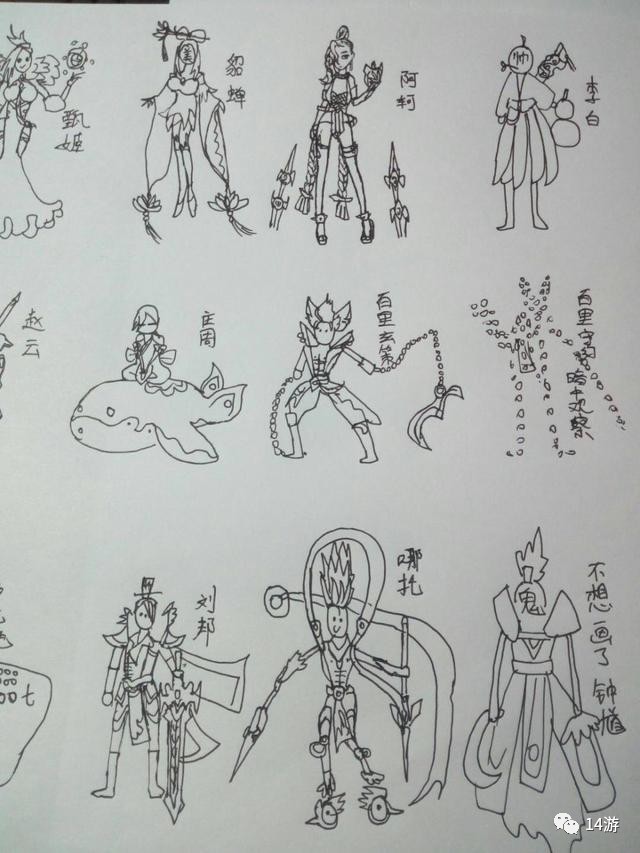 甄姬
貂蝉
美
阿轲
帅
李白
赵云
庄周
百里玄策
百里守约
暗中观察
七
刘邦
哪托
鬼
不想画了 钟馗
14游